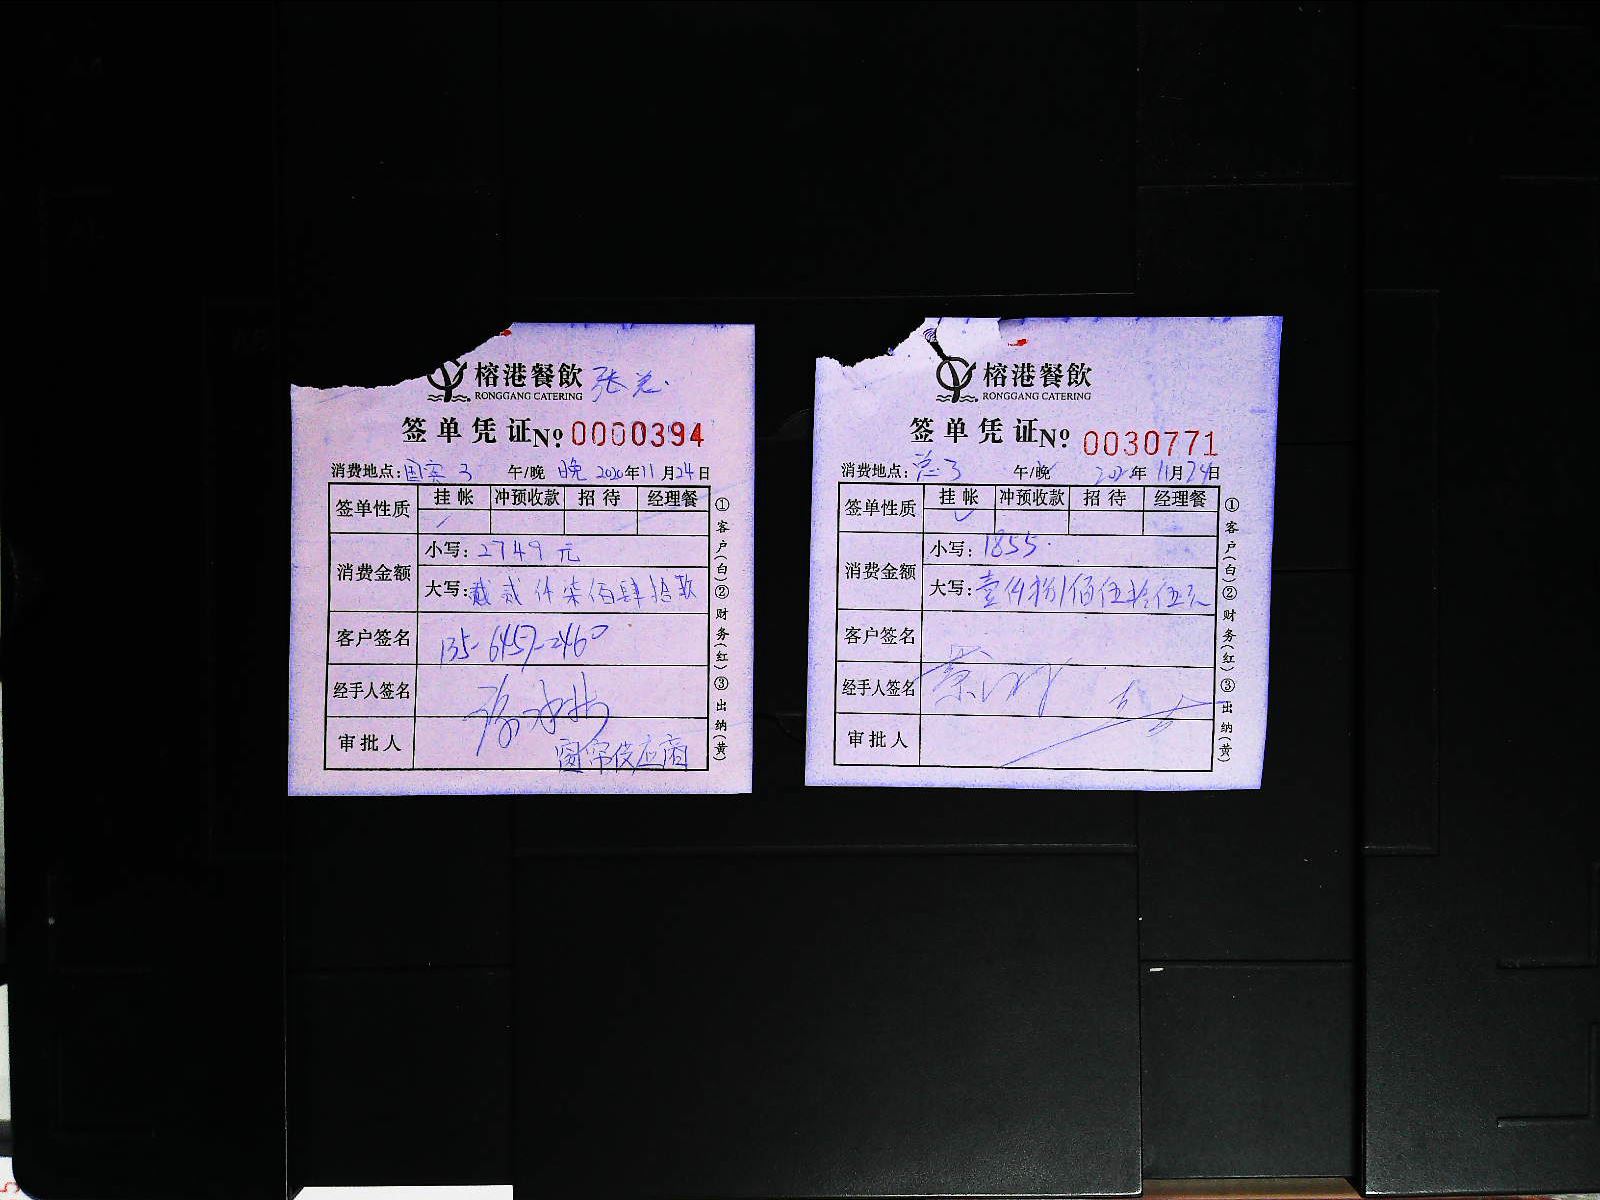 榕港餐飲 张总.
RONGGANG CATERING
签单凭证 № 0000394
消费地点: 国宾3 午/晚 晚 2020年11月24日
签单性质 挂帐 冲预收款 招待 经理餐
消费金额
小写: 2749元
大写: 贰仟柒佰肆拾玖
客户签名 135-6457-2460
经手人签名
审批人 窗帘供应商
①客户(白)②财务(红)③出纳(黄)
榕港餐飲
RONGGANG CATERING
签单凭证 № 0030771
消费地点: 总3 午/晚 2020年11月24日
签单性质 挂帐 冲预收款 招待 经理餐
消费金额
小写: 1855.
大写: 壹仟捌佰伍拾伍元
客户签名
经手人签名
审批人
①客户(白)②财务(红)③出纳(黄)